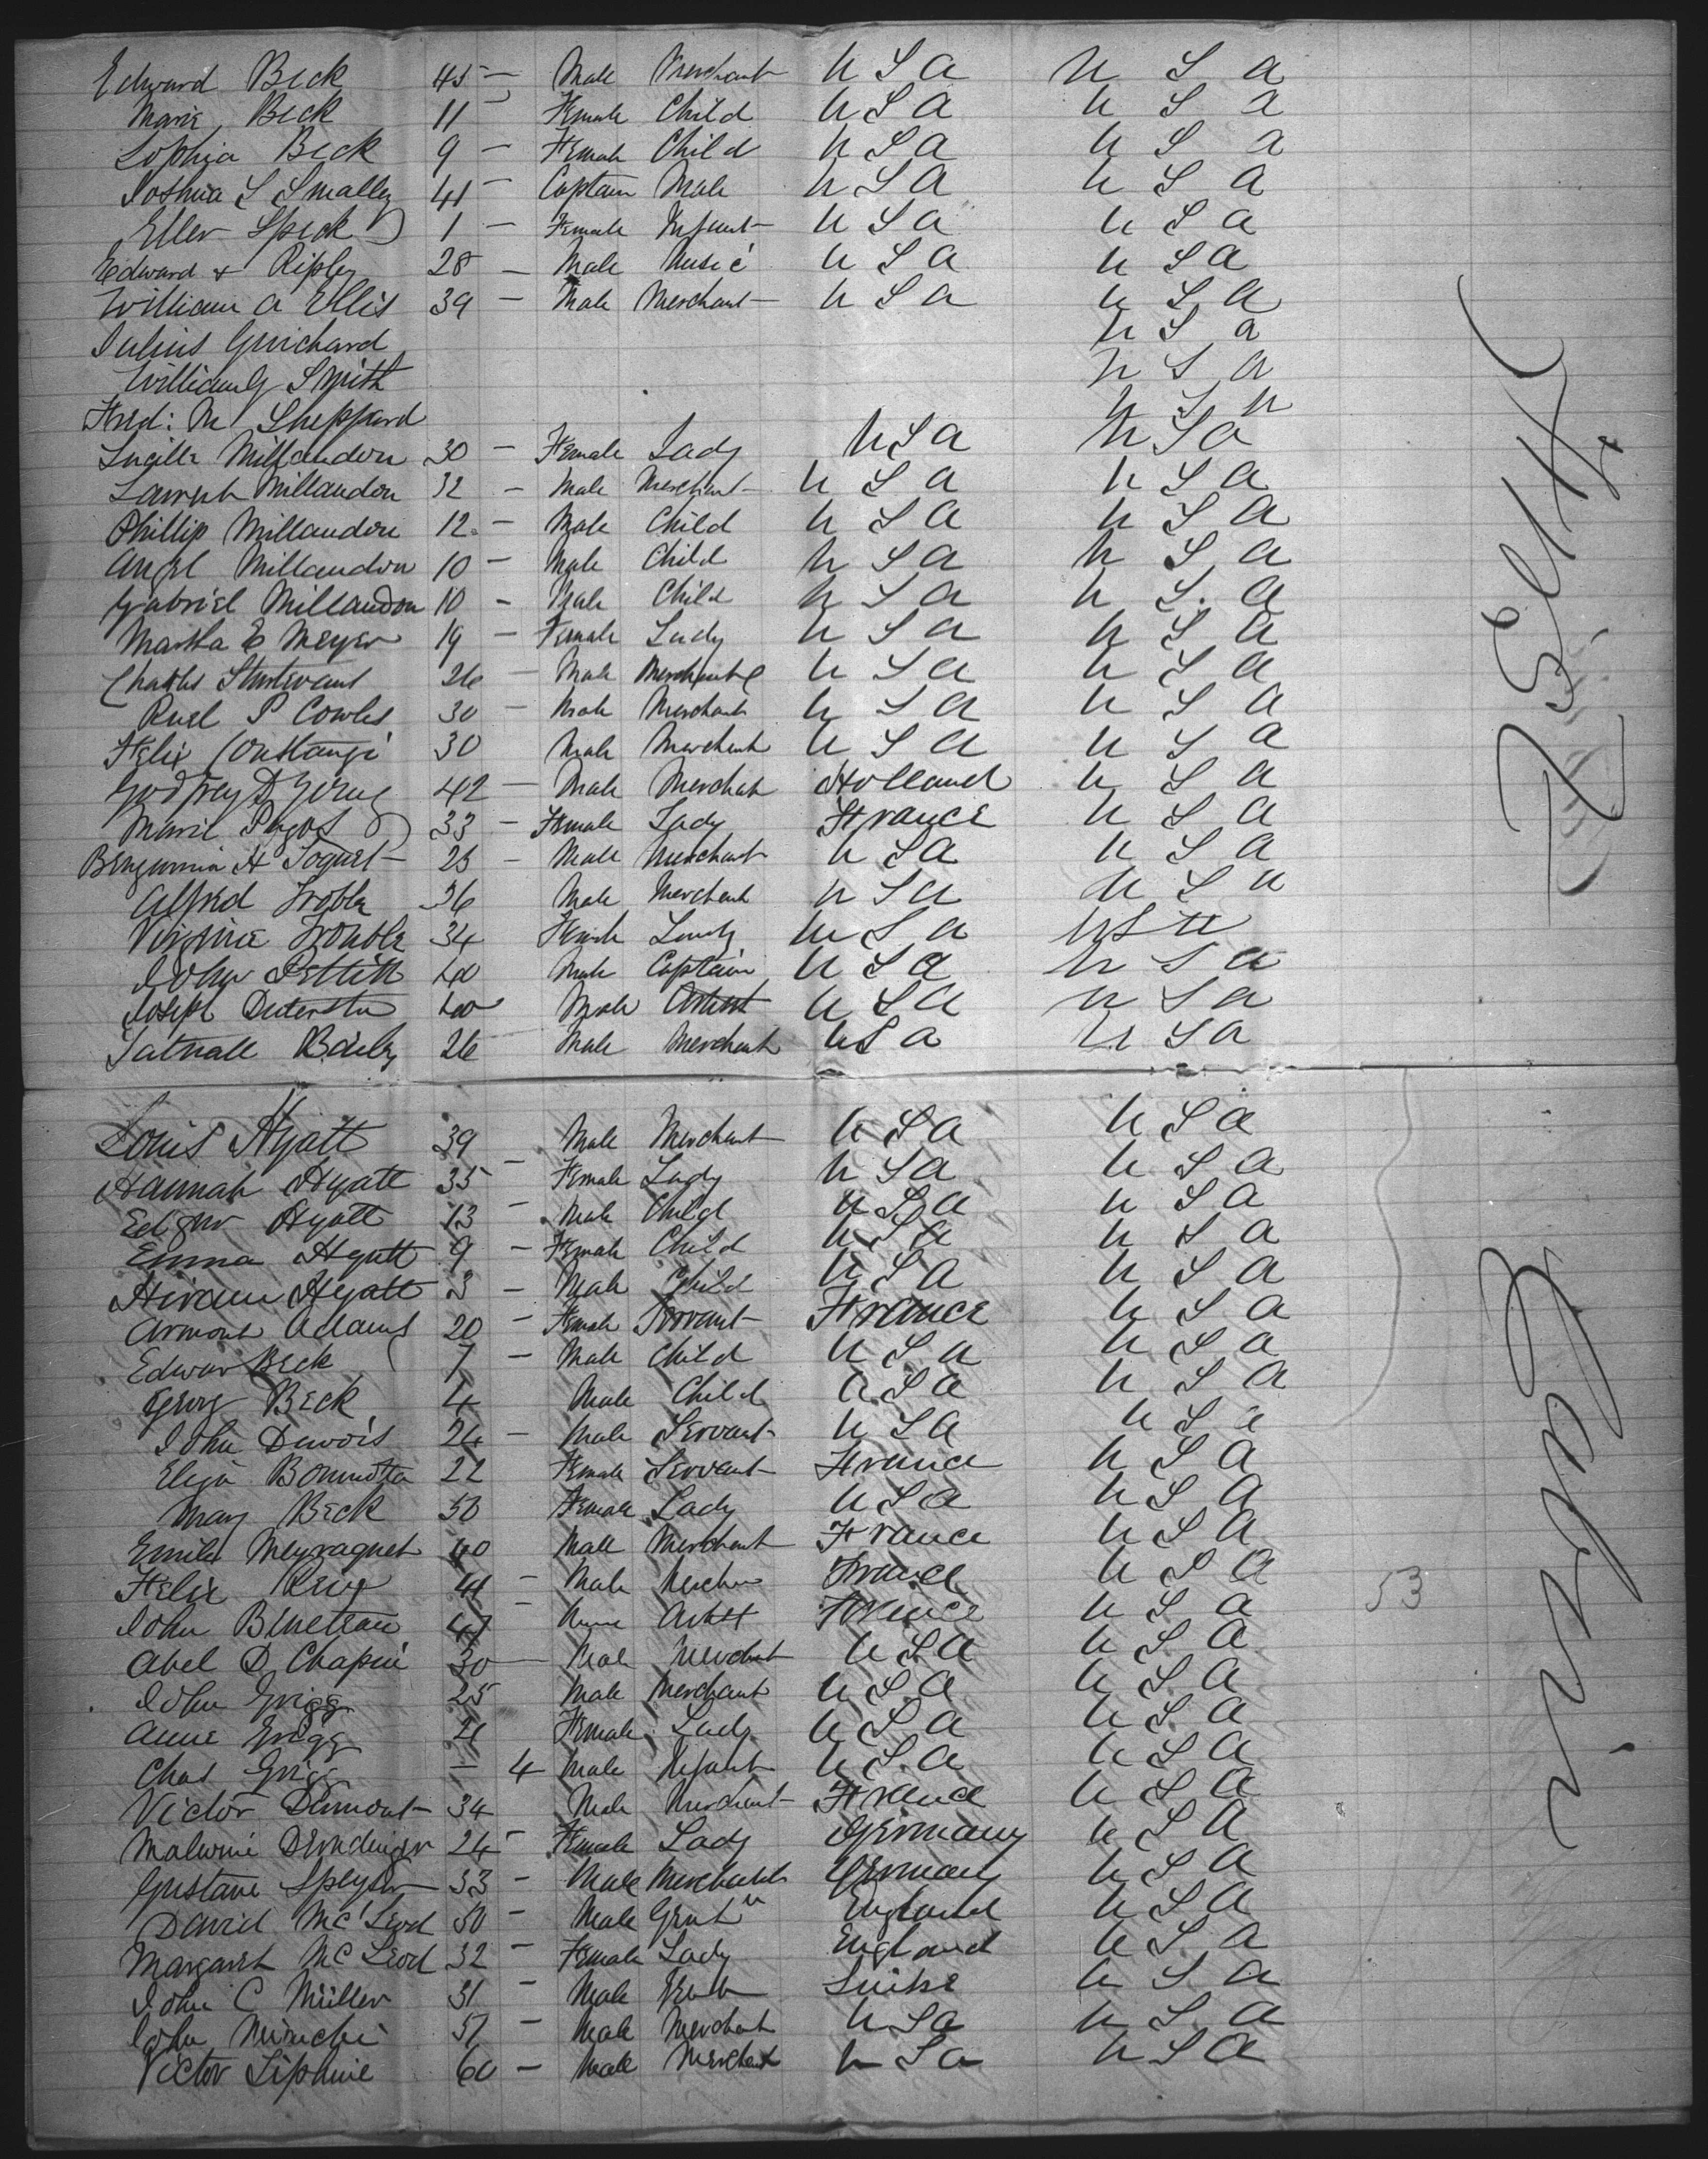 Edward Beck 45 — Male Merchant U S A U S A
Marie Beck 11 — Female Child U S A U S A
Sophia Beck 9 — Female Child U S A U S A
Joshua S Smalley 41 — Captain Male U S A U S A
Ellen Speck 1 — Female Infant U S A U S A
Edward + Ripley 28 — Male Music U S A U S A
William A Ellis 39 — Male Merchant U S A U S A
Julius Guichard U S A
William G Smith U S A
Fred: M Sheppard U S A
Lucille Millaudon 30 — Female Lady U S A U S A
Laurent Millaudon 32 — Male Merchant U S A U S A
Phillip Millaudon 12 — Male Child U S A U S A
Angel Millaudon 10 — Male Child U S A U S A
Gabriel Millaudon 10 — Male Child U S A U S A
Martha E Meyer 19 — Female Lady U S A U S A
Charles Sturtevant 26 — Male Merchant U S A U S A
Ruel P Cowles 30 — Male Merchant U S A U S A
Felix 30 Male Merchant U S A U S A
Godfrey D 42 — Male Merchat Holland U S A
Marie 33 — Female Lady France U S A
Benjamin H 25 — Male Merchant U S A U S A
Alfred 36 Male Merchant U S A U S A
Virginie 34 Female Lady U S A U S A
John Pettitt 40 Male Captain U S A U S A
Joseph 40 Male Artist U S A U S A
Tatnall Baily 26 Male Merchant U S A U S A
Louis Hyatt 39 Male Merchant U S A U S A
Hannah Hyatt 35 — Female Lady U S A U S A
Hyatt 13 — Male Child U S A U S A
Emma Hyatt 9 — Female Child U S A U S A
Hiram Hyatt 3 — Male Child U S A U S A
Armont Adams 20 — Female Servant France U S A
Edwar Beck 7 — Male Child U S A U S A
Georg Beck 4 Male Child U S A U S A
John 24 — Male Servant U S A U S A
Eliza 22 Female Servant France U S A
Mary Beck 50 Female Lady U S A U S A
Emile 40 Male Merchant France U S A
Felix 41 — Male France U S A
John 47 — Artist France U S A
Abel D Chapin 30 — Male Merchant U S A U S A
John Grigg 25 Male Merchant U S A U S A
Anne Grigg 21 Female Lady U S A U S A
Chas Grigg — 4 Male Infant U S A U S A
Victor Dumont 34 Male Merchant France U S A
24 — Female Lady Germany U S A
Gustave Speyer 33 — Male Merchant Germany U S A
David McLeod 50 — Male Gent England U S A
Margaret McLeod 32 — Female Lady England U S A
John C Müller 31 — Male Suisse U S A
John 51 — Male Merchat U S A U S A
Victor 60 — Male Merchant U S A U S A
53